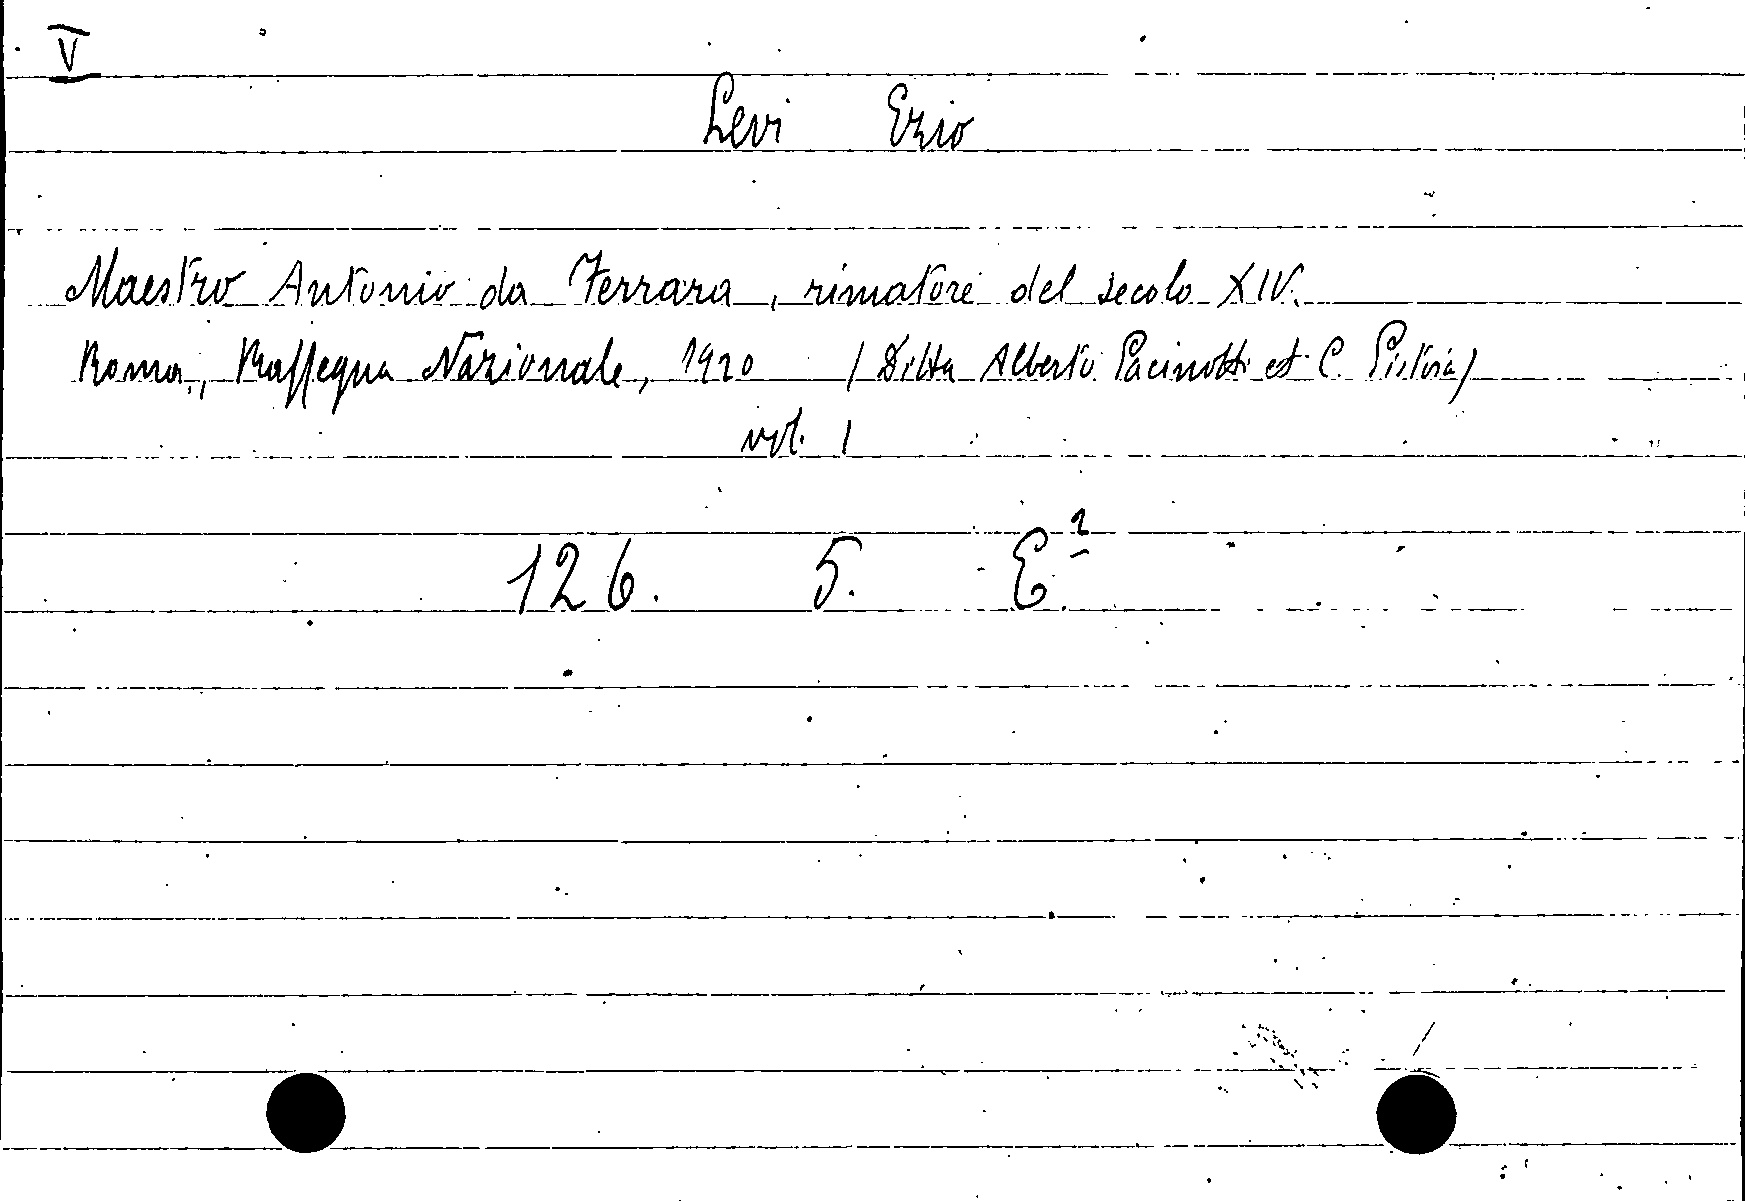 V
Levi Ezio
Maestro Antonio da Ferrara, rimatore del secolo XIV.
Roma, Rassegna Nazionale, 1920 (Ditta Alberto Pacinotti et C. Pistoia)
vol. 1
126. 5. E²